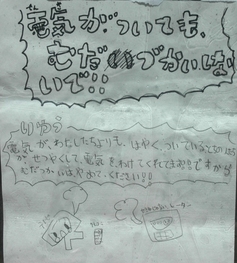 でん き
電気が、ついても、
むだづかいしな
いで!!
りゆう
電気が、わたしたちよりも、はやく、ついているところの人たち
が、せつやくして、電気をわけてくれてます!!ですから
むだづかいは、やめてください!!